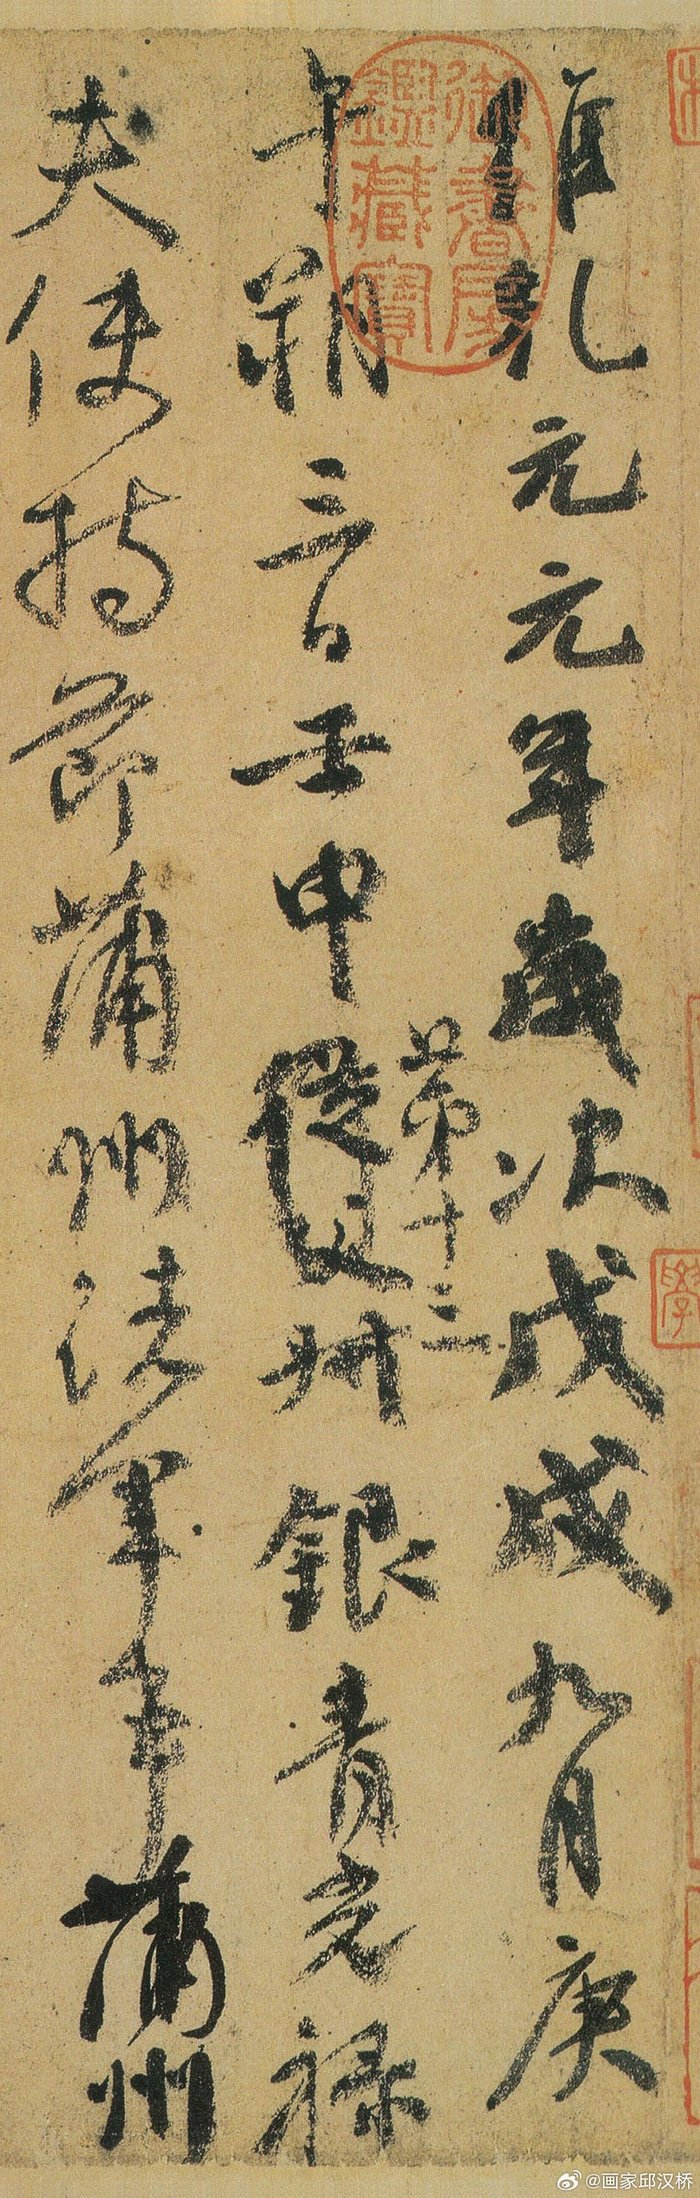 維乾元元年歲次戊戌九月庚
午朔三日壬申
第十三
從父叔銀青光祿
夫使持節蒲州諸軍事蒲州
御書房鑑藏寶
學
@画家邱汉桥